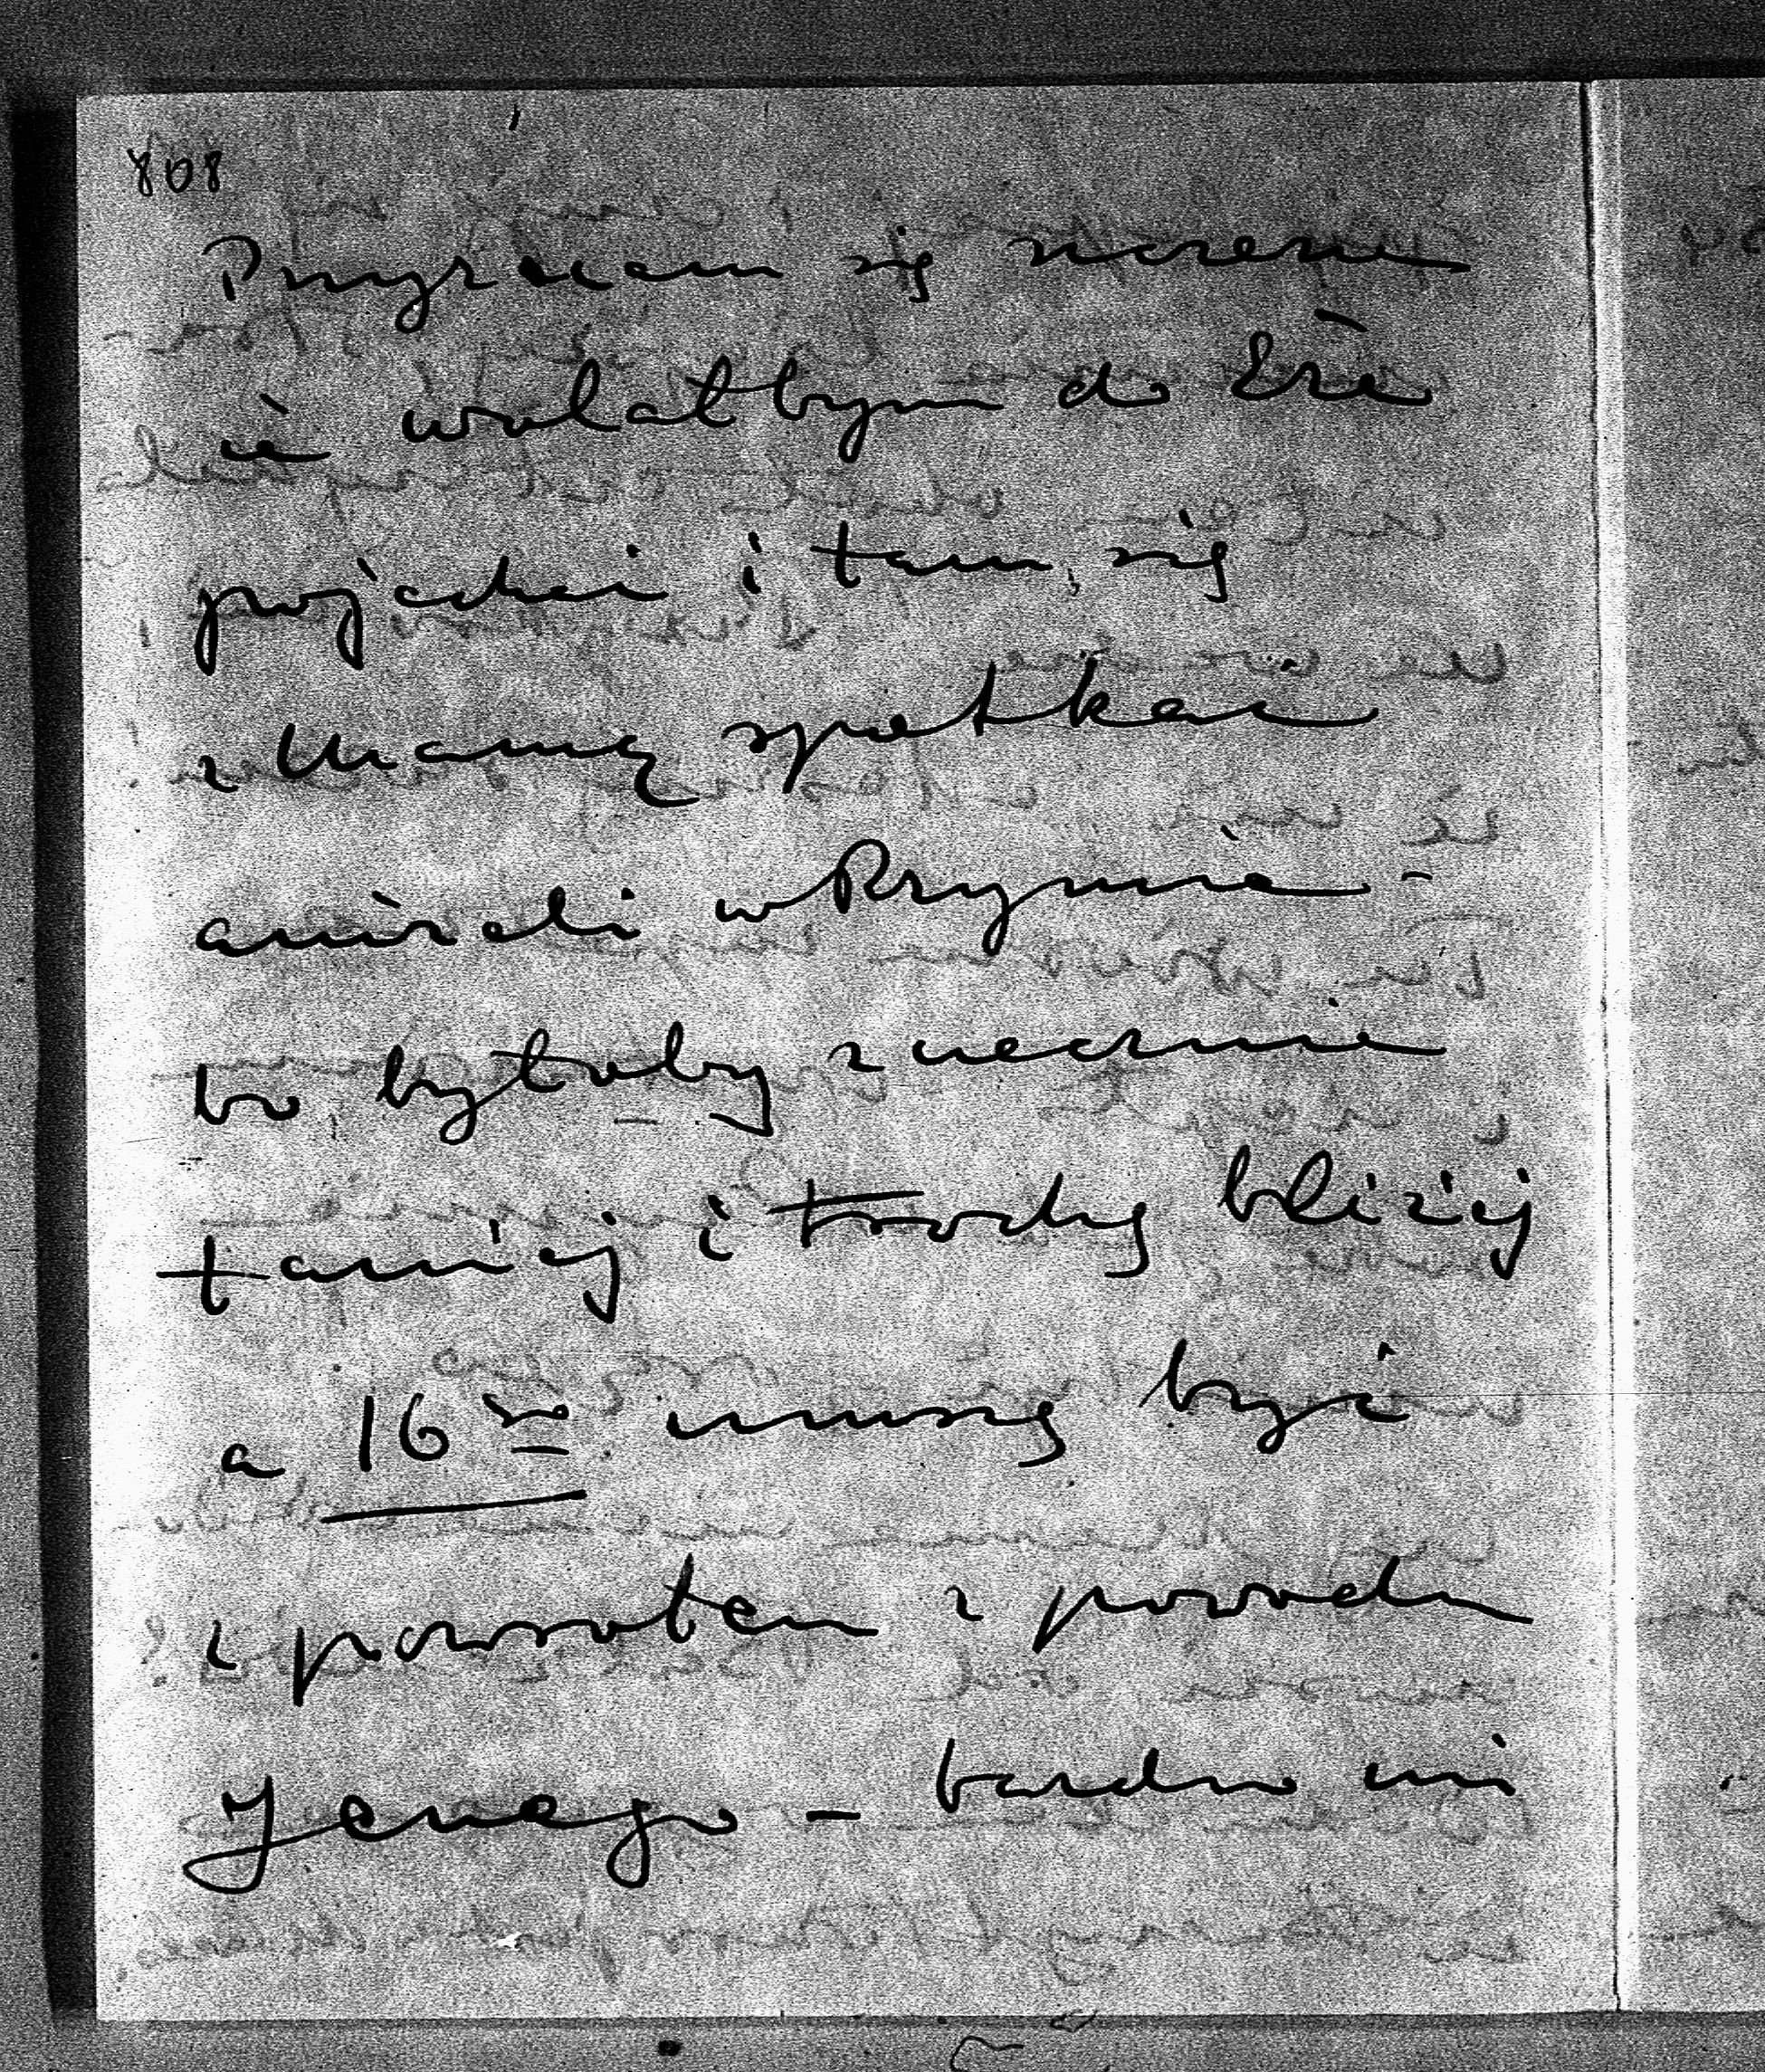 808
Przyznam się szczerze
że wolałbym do Eze
pojechać i tam się
z Mamą spotkać
aniżeli w Rzymie -
bo byłoby znacznie
taniej i trochę bliżej
a 16go muszę być
z powrotem z powodu
Jenego - bardzo mi